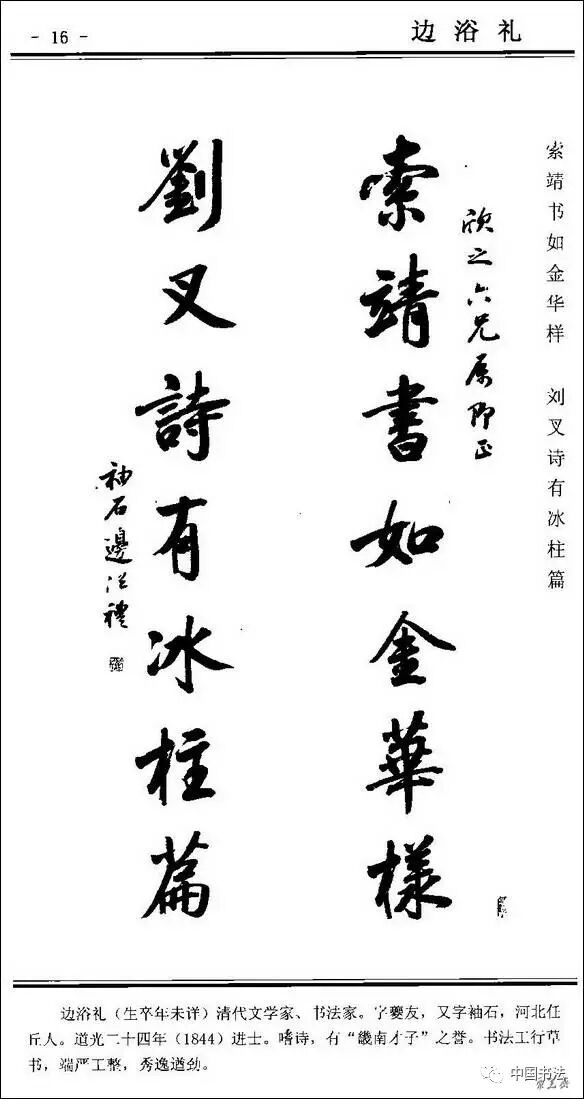 - 16 -
边浴礼
索靖书如金华样　刘叉诗有冰柱篇
欣之六兄即正
索靖書如金華樣
劉叉詩有冰柱篇
袖石邊浴禮
边浴礼（生卒年未详）清代文学家、书法家。字夔友，又字袖石，河北任
丘人。道光二十四年（1844）进士。嗜诗，有“畿南才子”之誉。书法工行草
书，端严工整，秀逸遒劲。
中国书法